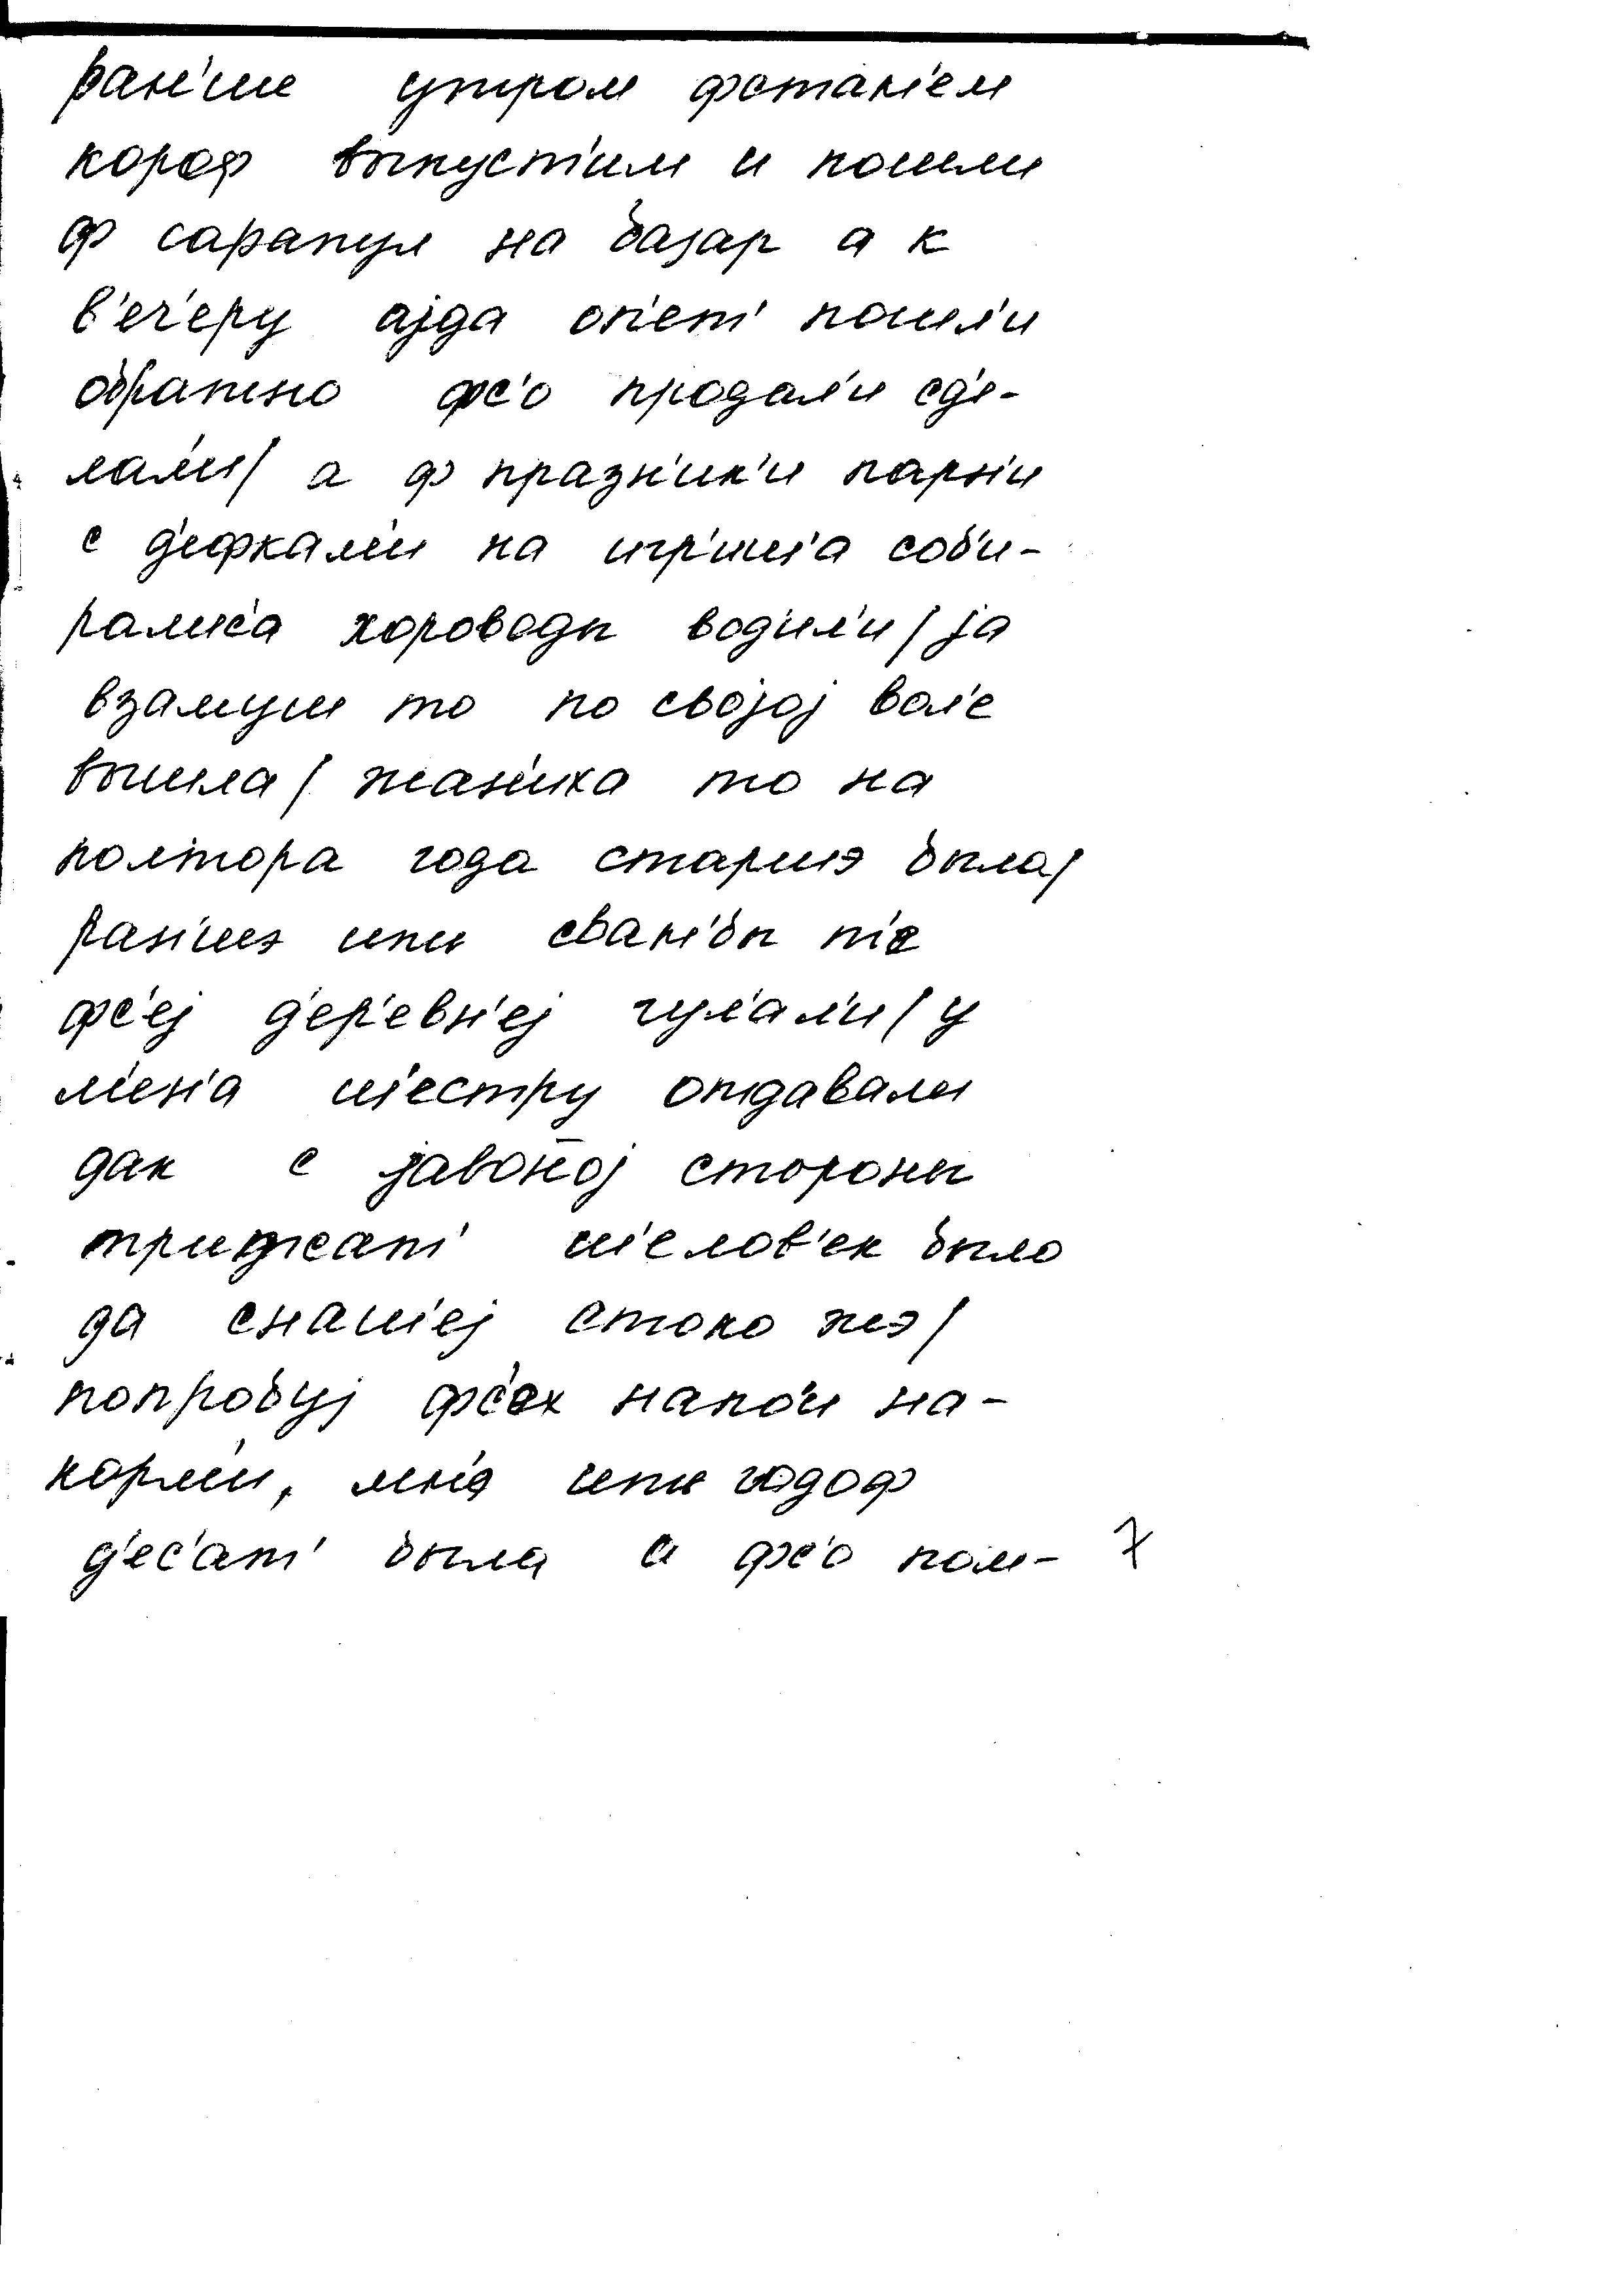 ран'ше утром фстан'ем
короф выпуст'им и пошли
ф сарапул на базар а к
в'еч'еру ајда оп'ет' пошл'и
обратно фс'о продал'и сд'е-
лал'и/ а ф празн'ик'и парн'и
с д'ефкам'и на игр'иш'а соб'и-
ралис'а хороводы вод'ил'и/ ја
взамуш то по својој вол'е
вышла/ жан'иха то на
полтора года старшэ была/
ран'шэ шты сван'бы п'е
фс'еј д'ер'евн'еј гул'ал'и/ у
м'ен'а ш'естру отдавали
дак с јавоној стороны
триджат' ш'елов'ек было
да снаш'еј стоко жэ/
попробуј фс'ех напо'и на-
корм'и, мн'е шты годоф
д'ес'ат' была а фс'о пом-
7